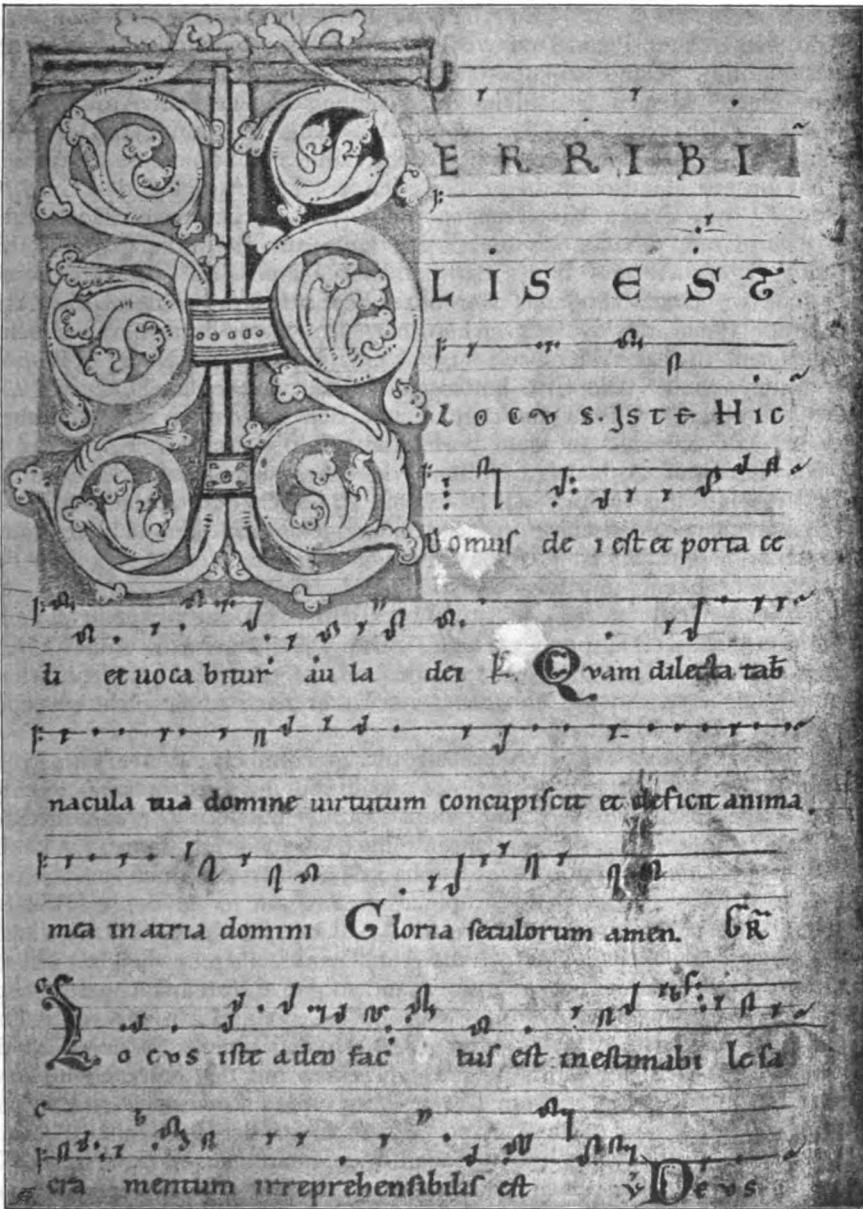 TERRIBI
LIS EST
LOCVS. ISTE HIC
Domus dei est et porta ce
li et uoca bitur au la dei Ps. Quam dilecta tab
nacula tua domine uirtutum concupiscit et deficit anima
mea in atria domini Gloria seculorum amen. GR
Locvs iste a deo fac tus est inestimabi le sa
cra mentum irreprehensibilis est V Devs